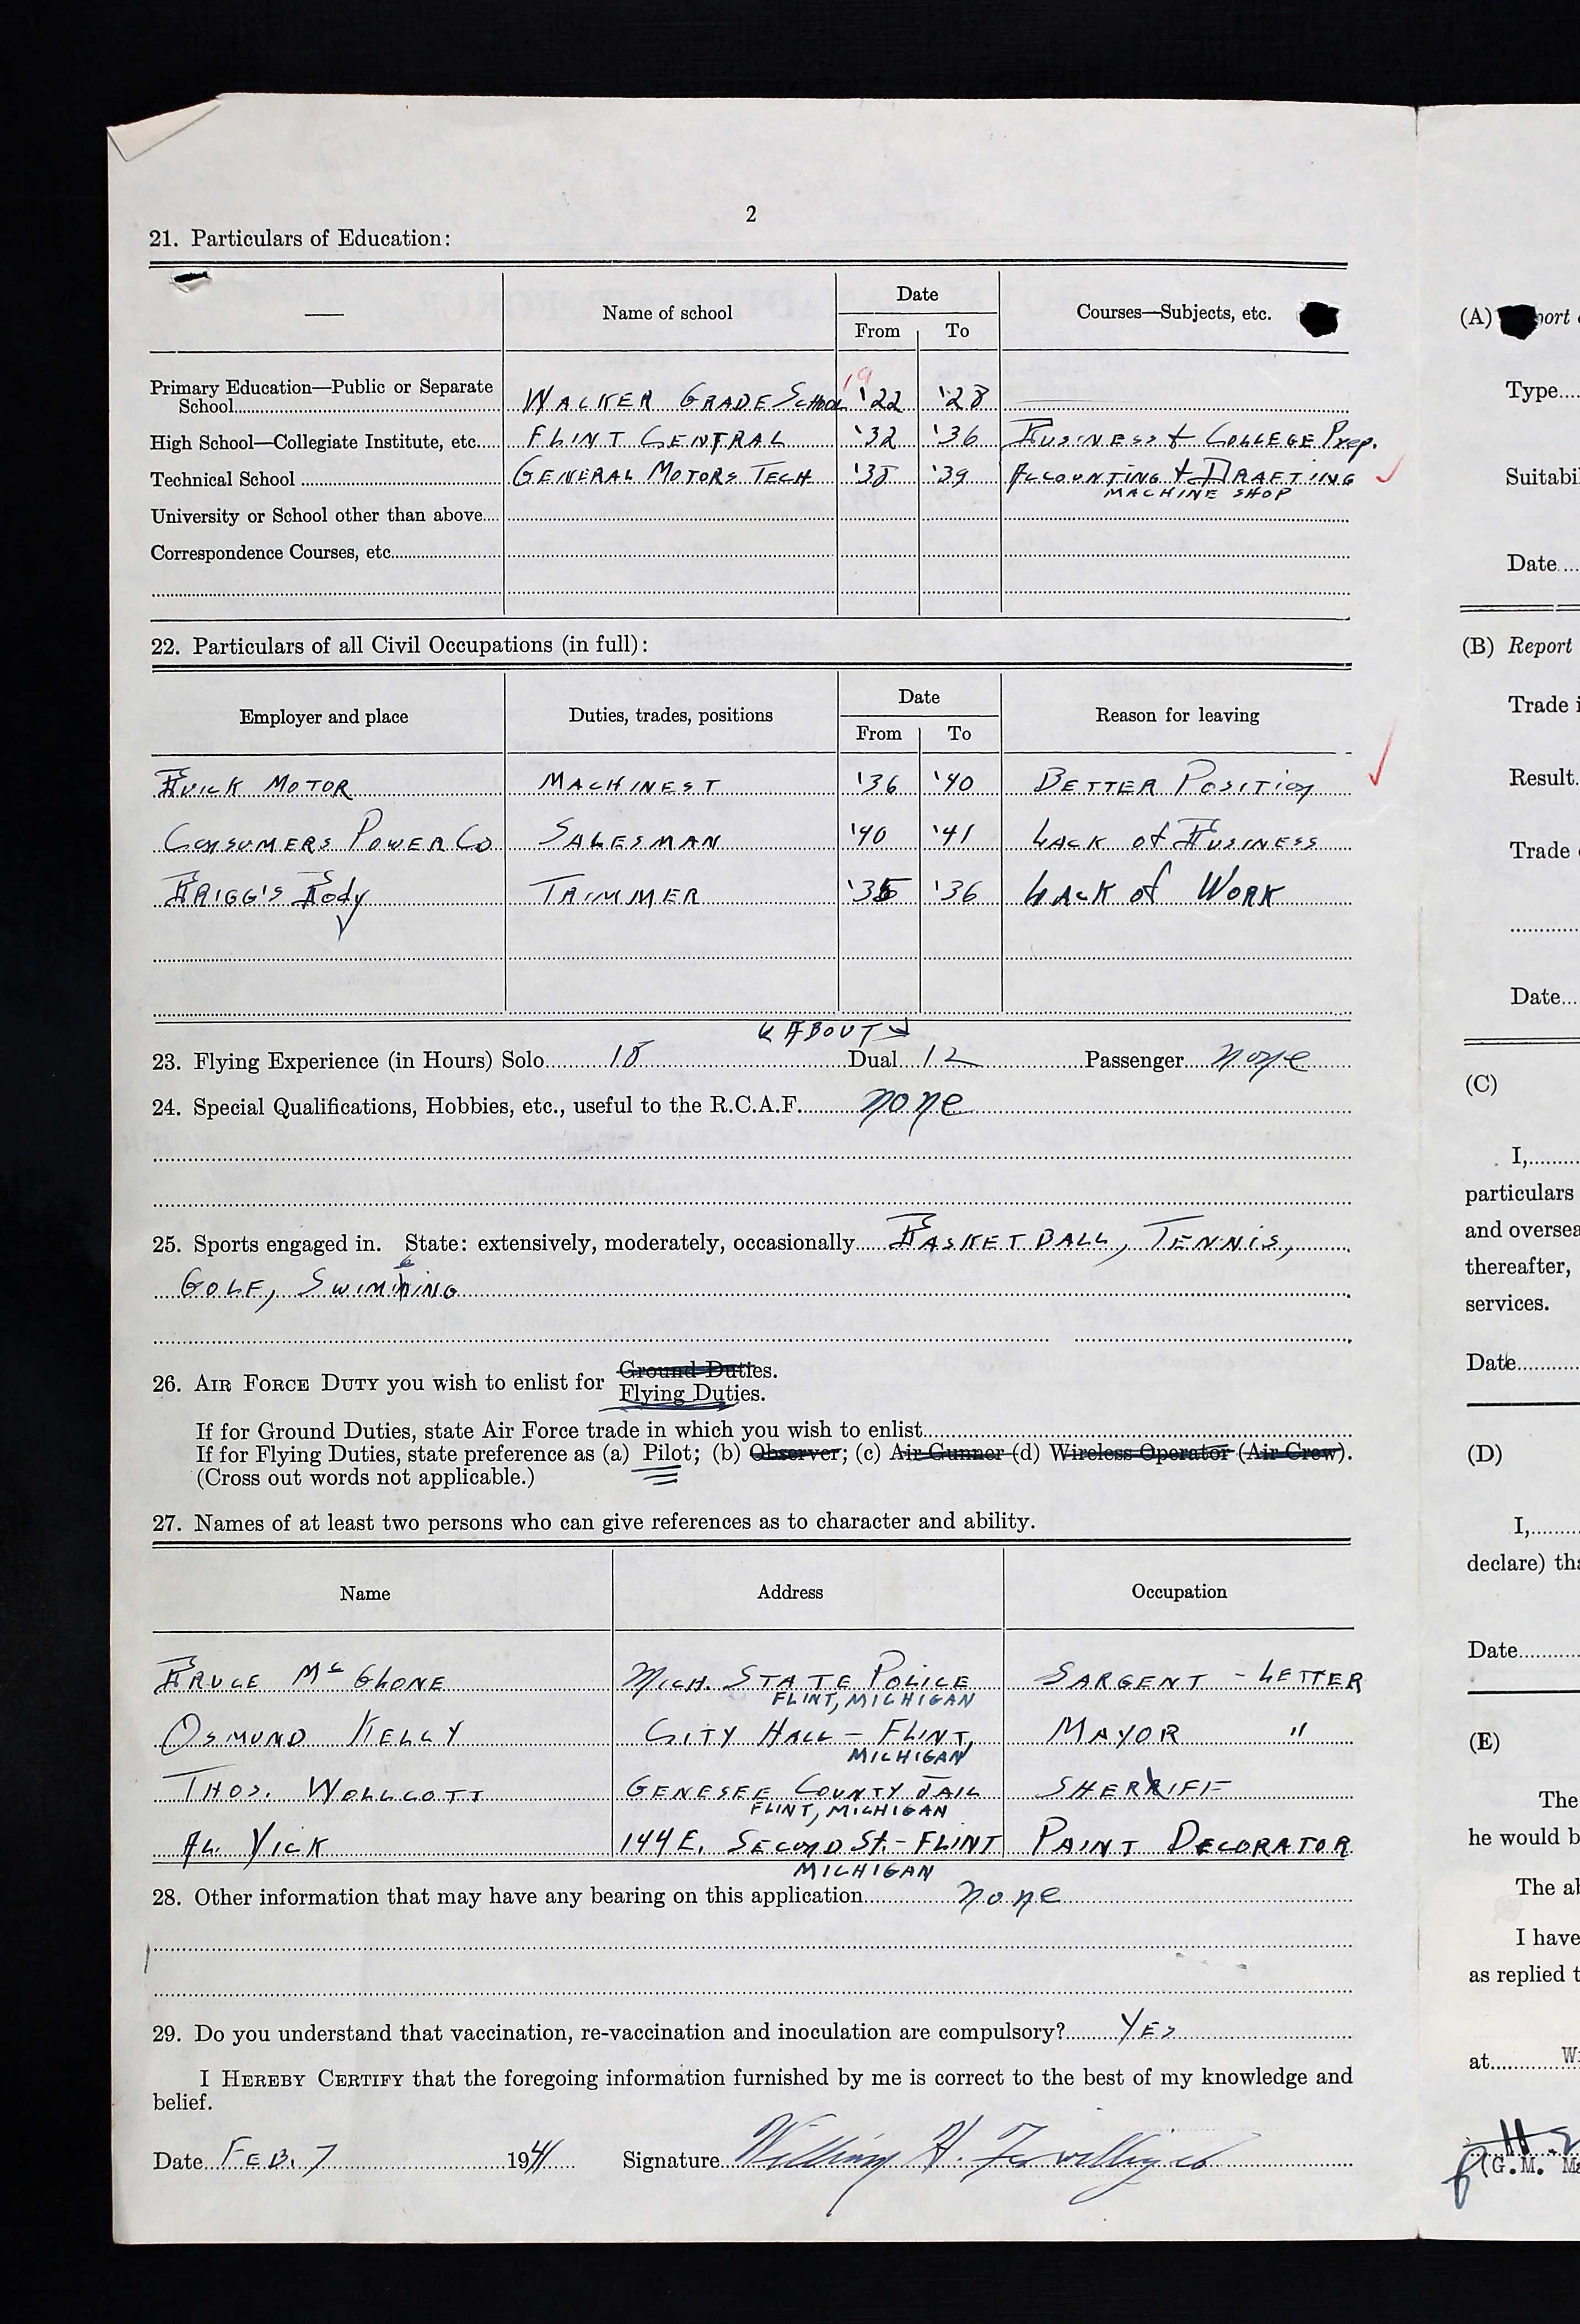 2
21. Particulars of Education:
— Name of school Date Courses—Subjects, etc.
From To
Primary Education—Public or Separate
School WALKER GRADE SCHOOL 19'22 '28
High School—Collegiate Institute, etc. FLINT CENTRAL '32 '36 BUSINESS + COLLEGE Prep.
Technical School GENERAL MOTORS TECH '38 '39 ACCOUNTING + DRAFTING
MACHINE SHOP
University or School other than above
Correspondence Courses, etc.
22. Particulars of all Civil Occupations (in full):
Employer and place Duties, trades, positions Date Reason for leaving
From To
BUICK MOTOR MACHINEST '36 '40 BETTER POSITION
CONSUMERS POWER CO SALESMAN '40 '41 LACK of BUSINESS
BRIGG'S Body TRIMMER '35 '36 LACK of WORK
ABOUT
23. Flying Experience (in Hours) Solo 18 Dual 12 Passenger none
24. Special Qualifications, Hobbies, etc., useful to the R.C.A.F. none
25. Sports engaged in. State: extensively, moderately, occasionally BASKET BALL, TENNIS,
GOLF, SWIMMING
26. AIR FORCE DUTY you wish to enlist for Ground Duties.
Flying Duties.
If for Ground Duties, state Air Force trade in which you wish to enlist
If for Flying Duties, state preference as (a) Pilot; (b) Observer; (c) Air Gunner (d) Wireless Operator (Air Crew).
(Cross out words not applicable.)
27. Names of at least two persons who can give references as to character and ability.
Name Address Occupation
BRUCE McGLONE MICH. STATE POLICE SARGENT - LETTER
FLINT, MICHIGAN
OSMUND KELLY CITY HALL - FLINT, MAYOR "
MICHIGAN
THOS. WOLLCOTT GENESEE COUNTY JAIL SHERRIFF
FLINT, MICHIGAN
AL. VICK 144 E. SECOND St. - FLINT PAINT DECORATOR
MICHIGAN
28. Other information that may have any bearing on this application none
29. Do you understand that vaccination, re-vaccination and inoculation are compulsory? YES
I HEREBY CERTIFY that the foregoing information furnished by me is correct to the best of my knowledge and
belief.
Date FEB. 7 1941 Signature William H.
(A)
Type
Suitabi
Date
(B) Report
Trade i
Result
Trade
Date
(C)
I,
particulars
and oversea
thereafter,
services.
Date
(D)
I,
declare) tha
Date
(E)
The
he would b
The ab
I have
as replied t
at W
(G.M. Ma